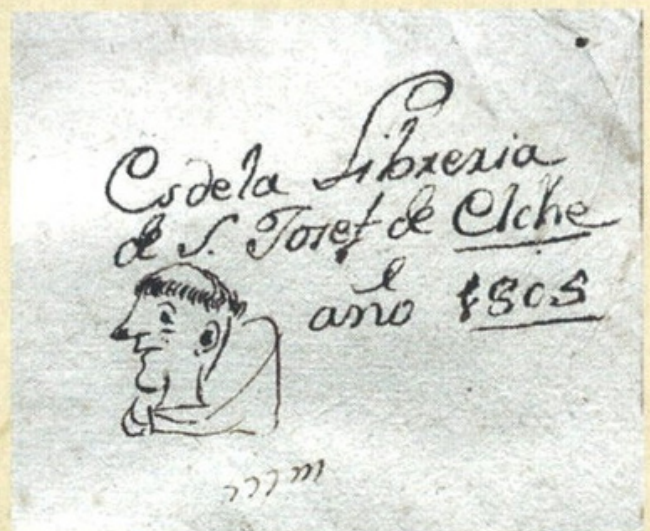 Es de la Libreria
de S. Josef de Elche
año 1805